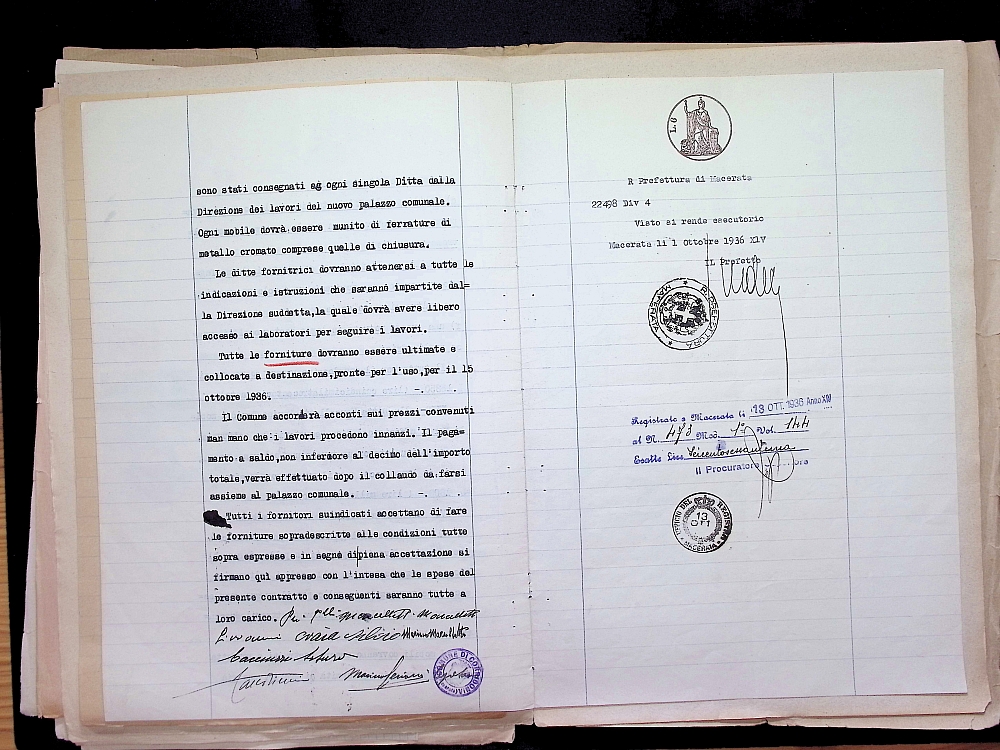 sono stati consegnati ag ogni singola Ditta dalla
Direzione dei lavori del nuovo palazzo comunale.
Ogni mobile dovrà essere munito di ferrature di
metallo cromato comprese quelle di chiusura.
Le ditte fornitrici dovranno attenersi a tutte le
indicazioni e istruzioni che saranno impartite dal=
la Direzione suddetta,la quale dovrà avere libero
accesso ai laboratori per seguire i lavori.
Tutte le forniture dovranno essere ultimate e
collocate a destinazione,pronte per l'uso,per il 15
ottobre 1936. -.
Il Comune accorderà acconti sui prezzi convenuti
man mano che i lavori procedono innanzi. Il paga=
mento a saldo,non inferiore al decimo dell'importo
totale,verrà effettuato dopo il collaudo da farsi
assieme al palazzo comunale. -.
Tutti i fornitori suindicati accettano di fare
le forniture sopradescritte alle condizioni tutte
sopra espresse e in segno di piena accettazione si
firmano quì appresso con l'intesa che le spese del
presente contratto e conseguenti saranno tutte a
loro carico.
COMUNE DI
L. 6
R Prefettura di Macerata
22498 Div 4
Visto si rende esecutorio
Macerata li 1 Ottobre 1936 XIV
IL Prefetto
R. PREFETTURA * MACERATA *
Registrato a Macerata li 13 OTT. 1936 Anno XIV
al N. 473 Mod. 1° Vol. 144
Esatte Lire
Il Procuratore
UFFICIO DEL REGISTRO
13
OTT
MACERATA